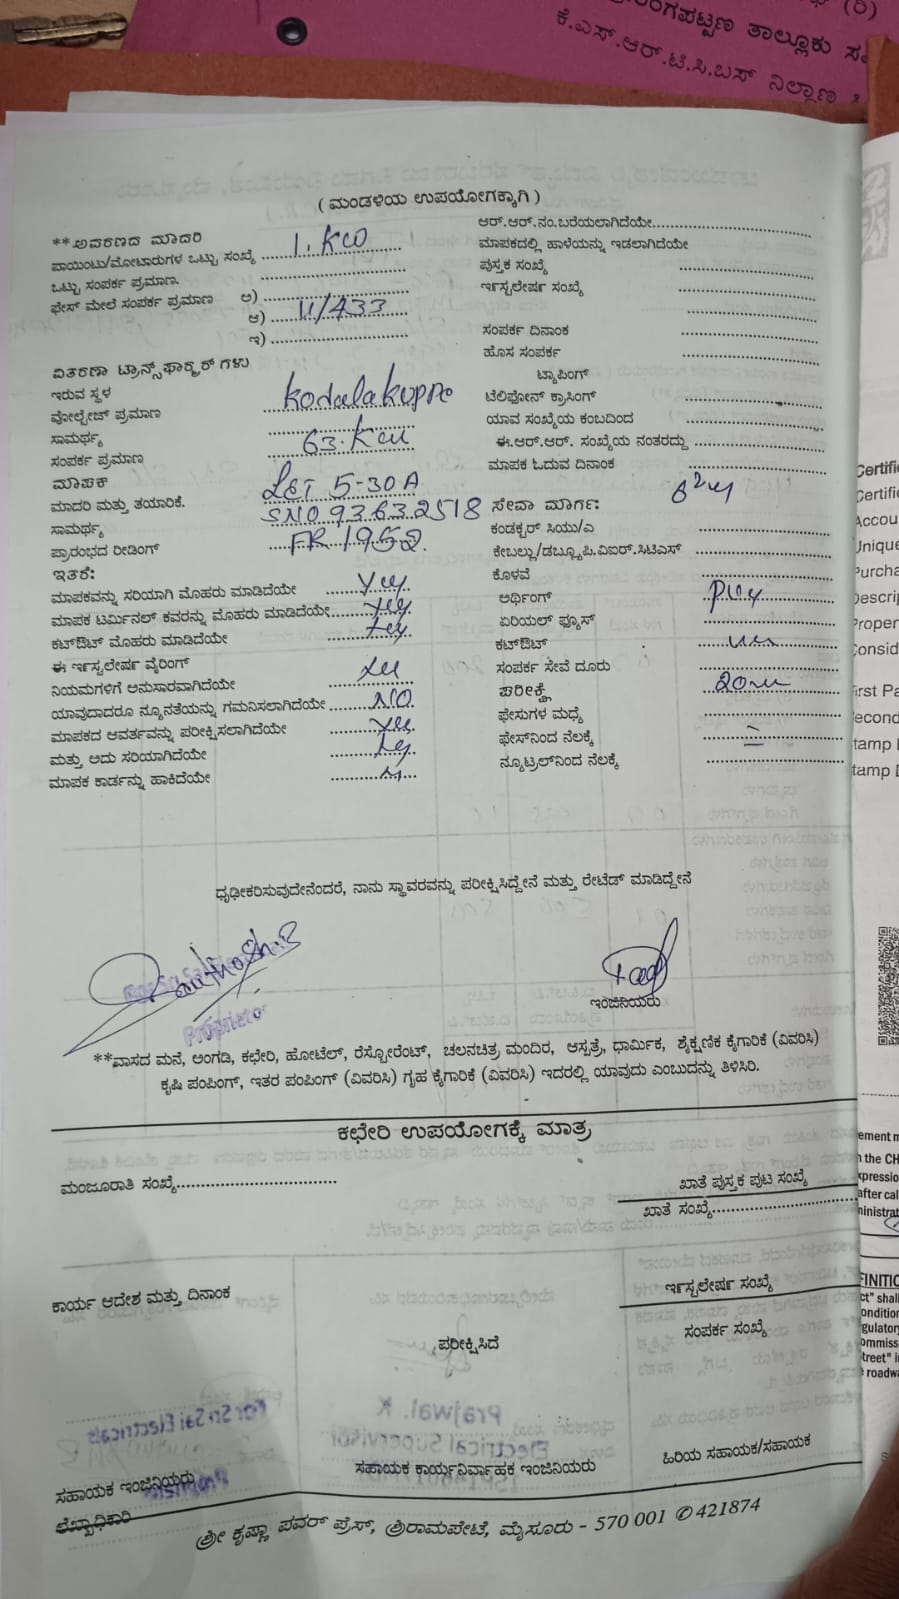 (ರಿ)
ರಂಗಪಟ್ಟಣ ತಾಲ್ಲೂಕು
ಕೆ.ಎಸ್.ಆರ್.ಟಿ.ಸಿ.ಬಸ್ ನಿಲ್ದಾಣ
( ಮಂಡಳಿಯ ಉಪಯೋಗಕ್ಕಾಗಿ )
**ಆವರಣದ ಮಾದರಿ
ಪಾಯಿಂಟು/ಮೋಟಾರುಗಳ ಒಟ್ಟು ಸಂಖ್ಯೆ ..... 1. KW
ಒಟ್ಟು ಸಂಪರ್ಕ ಪ್ರಮಾಣ. .....
ಫೇಸ್ ಮೇಲೆ ಸಂಪರ್ಕ ಪ್ರಮಾಣ ಅ) .....
ಆ) ..... 11/433
ಇ) .....
ವಿತರಣಾ ಟ್ರಾನ್ಸ್‌ಫಾರ್ಮರ್ ಗಳು
ಇರುವ ಸ್ಥಳ
ವೋಲ್ಟೇಜ್ ಪ್ರಮಾಣ .....
ಸಾಮರ್ಥ್ಯ .....
ಸಂಪರ್ಕ ಪ್ರಮಾಣ ..... 63.
ಮಾಪಕ
ಮಾದರಿ ಮತ್ತು ತಯಾರಿಕೆ. ..... L&T 5-30A
ಸಾಮರ್ಥ್ಯ ..... SNO 93632518
ಪ್ರಾರಂಭದ ರೀಡಿಂಗ್ ..... FR
ಇತರೆ:
ಮಾಪಕವನ್ನು ಸರಿಯಾಗಿ ಮೊಹರು ಮಾಡಿದೆಯೇ ..... Yes
ಮಾಪಕ ಟರ್ಮಿನಲ್ ಕವರನ್ನು ಮೊಹರು ಮಾಡಿದೆಯೇ ..... Yes
ಕಟ್‌ಔಟ್ ಮೊಹರು ಮಾಡಿದೆಯೇ ..... Yes
ಈ ಇನ್ಸ್ಟಲೇಷನ್ ವೈರಿಂಗ್
ನಿಯಮಗಳಿಗೆ ಅನುಸಾರವಾಗಿದೆಯೇ ..... Yes
ಯಾವುದಾದರೂ ನ್ಯೂನತೆಯನ್ನು ಗಮನಿಸಲಾಗಿದೆಯೇ ..... NO
ಮಾಪಕದ ಆವರ್ತವನ್ನು ಪರೀಕ್ಷಿಸಲಾಗಿದೆಯೇ ..... Yes
ಮತ್ತು ಅದು ಸರಿಯಾಗಿದೆಯೇ ..... Yes
ಮಾಪಕ ಕಾರ್ಡನ್ನು ಹಾಕಿದೆಯೇ .....
ಆರ್.ಆರ್.ನಂ.ಬರೆಯಲಾಗಿದೆಯೇ.....
ಮಾಪಕದಲ್ಲಿ ಹಾಳೆಯನ್ನು ಇಡಲಾಗಿದೆಯೇ
ಪುಸ್ತಕ ಸಂಖ್ಯೆ .....
ಇನ್ಸ್ಟಲೇಷನ್ ಸಂಖ್ಯೆ .....
ಸಂಪರ್ಕ ದಿನಾಂಕ .....
ಹೊಸ ಸಂಪರ್ಕ .....
ಟ್ಯಾಪಿಂಗ್
ಟೆಲಿಫೋನ್ ಕ್ರಾಸಿಂಗ್ .....
ಯಾವ ಸಂಖ್ಯೆಯ ಕಂಬದಿಂದ .....
ಈ.ಆರ್.ಆರ್. ಸಂಖ್ಯೆಯ ನಂತರದ್ದು .....
ಮಾಪಕ ಓದುವ ದಿನಾಂಕ .....
ಸೇವಾ ಮಾರ್ಗ:
ಕಂಡಕ್ಟರ್ ಸಿಯು/ಎ .....
ಕೇಬಲ್ಲು/ಡಬ್ಲ್ಯೂ.ಪಿ.ವಿಐಆರ್.ಸಿಟಿಎಸ್ .....
ಕೊಳವೆ .....
ಅರ್ಥಿಂಗ್ .....
ಏರಿಯಲ್ ಫ್ಯೂಸ್ .....
ಕಟ್‌ಔಟ್ .....
ಸಂಪರ್ಕ ಸೇವೆ ದೂರು .....
ಪರೀಕ್ಷೆ ..... 20
ಫೇಸುಗಳ ಮಧ್ಯೆ .....
ಫೇಸ್‌ನಿಂದ ನೆಲಕ್ಕೆ .....
ನ್ಯೂಟ್ರಲ್‌ನಿಂದ ನೆಲಕ್ಕೆ .....
ಧೃಢೀಕರಿಸುವುದೇನೆಂದರೆ, ನಾನು ಸ್ಥಾವರವನ್ನು ಪರೀಕ್ಷಿಸಿದ್ದೇನೆ ಮತ್ತು ರೇಟೆಡ್ ಮಾಡಿದ್ದೇನೆ
Proprietor
ಇಂಜಿನಿಯರು
**ವಾಸದ ಮನೆ, ಅಂಗಡಿ, ಕಛೇರಿ, ಹೋಟೆಲ್, ರೆಸ್ಟೋರೆಂಟ್, ಚಲನಚಿತ್ರ ಮಂದಿರ, ಆಸ್ಪತ್ರೆ, ಧಾರ್ಮಿಕ, ಶೈಕ್ಷಣಿಕ ಕೈಗಾರಿಕೆ (ವಿವರಿಸಿ)
ಕೃಷಿ ಪಂಪಿಂಗ್, ಇತರ ಪಂಪಿಂಗ್ (ವಿವರಿಸಿ) ಗೃಹ ಕೈಗಾರಿಕೆ (ವಿವರಿಸಿ) ಇದರಲ್ಲಿ ಯಾವುದು ಎಂಬುದನ್ನು ತಿಳಿಸಿರಿ.
ಕಛೇರಿ ಉಪಯೋಗಕ್ಕೆ ಮಾತ್ರ
ಮಂಜೂರಾತಿ ಸಂಖ್ಯೆ.....
ಖಾತೆ ಪುಸ್ತಕ ಪುಟ ಸಂಖ್ಯೆ
ಖಾತೆ ಸಂಖ್ಯೆ.....
ಕಾರ್ಯ ಆದೇಶ ಮತ್ತು ದಿನಾಂಕ
ಇನ್ಸ್ಟಲೇಷನ್ ಸಂಖ್ಯೆ
ಸಂಪರ್ಕ ಸಂಖ್ಯೆ
ಪರೀಕ್ಷಿಸಿದೆ
ಸಹಾಯಕ ಇಂಜಿನಿಯರು
ಸಹಾಯಕ ಕಾರ್ಯನಿರ್ವಾಹಕ ಇಂಜಿನಿಯರು
ಹಿರಿಯ ಸಹಾಯಕ/ಸಹಾಯಕ
ಲೆಖ್ಖಾಧಿಕಾರಿ
ಶ್ರೀ ಕೃಷ್ಣಾ ಪವರ್ ಪ್ರೆಸ್, ಶ್ರೀರಾಮಪೇಟೆ, ಮೈಸೂರು - 570 001 ✆ 421874